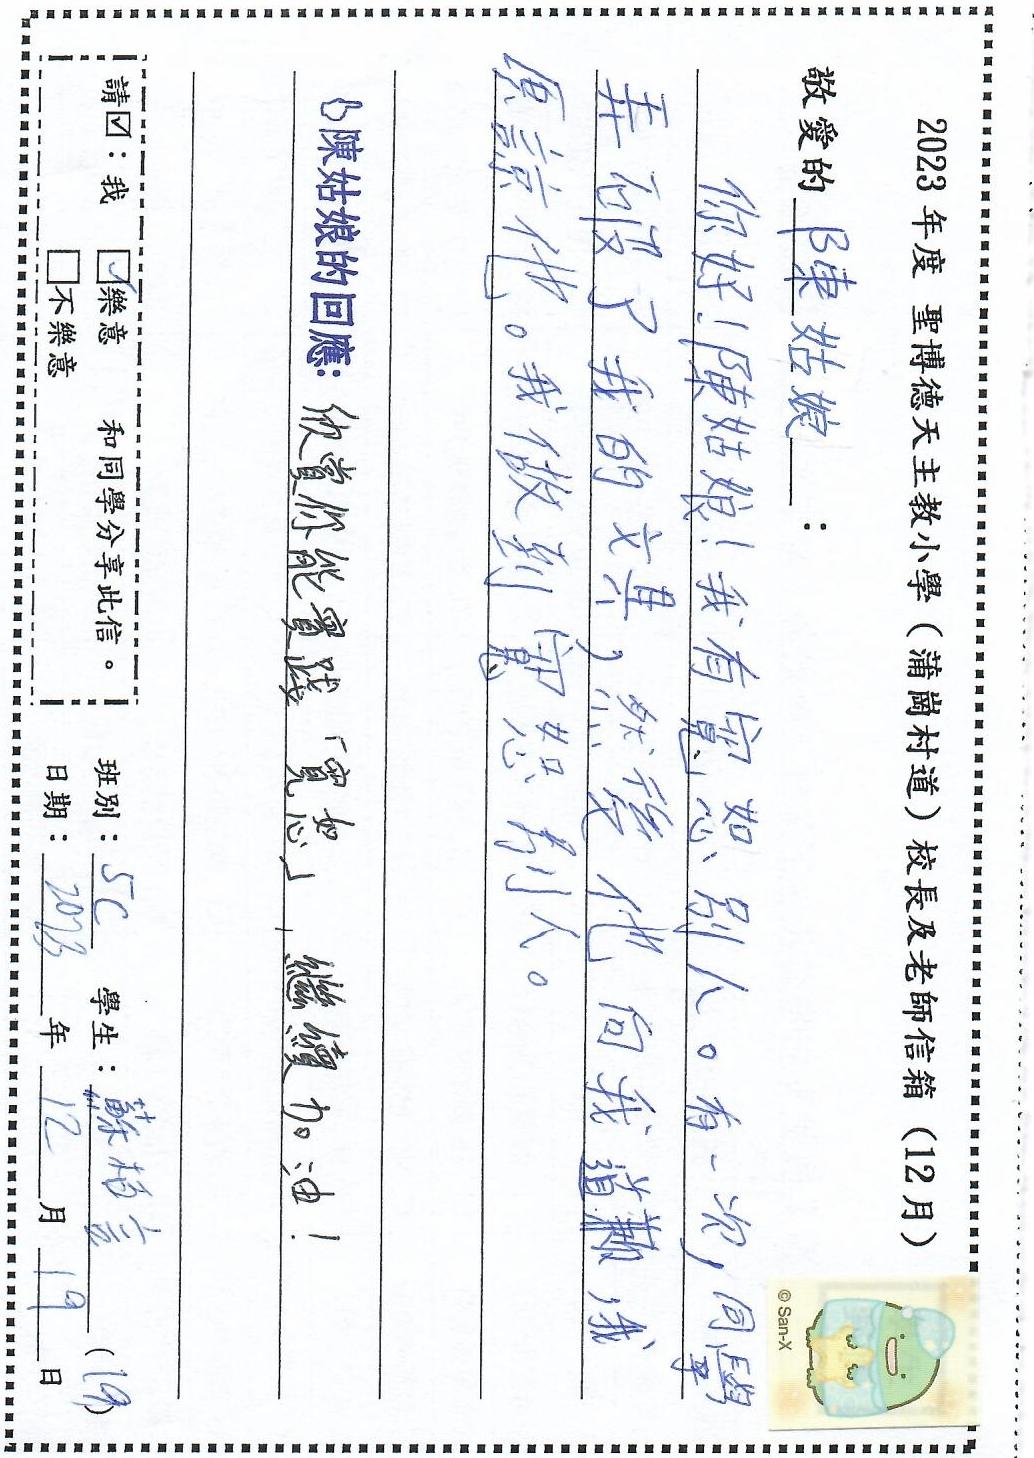 2023 年度 聖博德天主教小學（蒲崗村道）校長及老師信箱（12月）
敬愛的 陳姑娘：
你好！陳姑娘！我有寬恕別人。有一次，同學
弄破了我的文具，然後他向我道歉，我
原諒他。我做到寬恕別人。
陳姑娘的回應: 欣賞你能實踐「寬恕」，繼續加油！
請☑：我 ☑樂意 和同學分享此信。
□不樂意
班別：5C 學生：蘇栢言 (19)
日期：2023年12月19日
© San-X